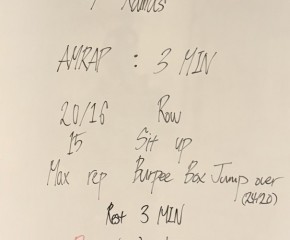 AMRAP : 3 MIN
20/16 Row
15 Sit up
Max rep Burpee Box Jump over
(24/20)
Rest 3 MIN